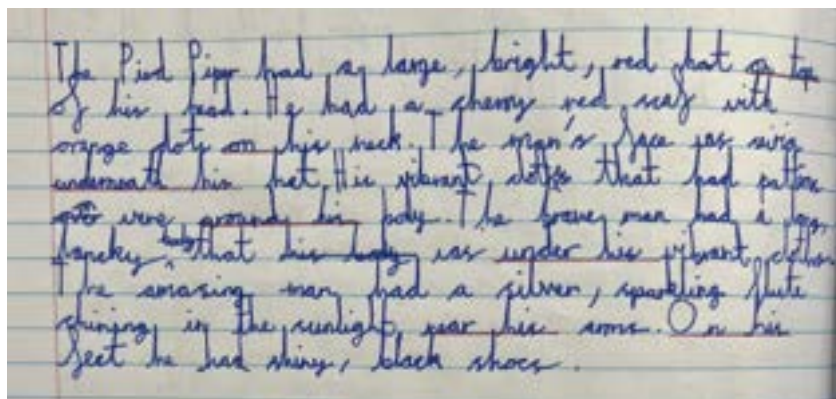 The Pied Piper had a large, bright, red hat on top
of his head. He had a cherry red scarf with
orange dots on his neck. The man's face was
underneath his hat. His vibrant clothes that had
were around his body. The brave man had a long,
body that his was under his vibrant clothes.
The amazing man had a silver, sparkling flute
shining in the sunlight near his arms. On his
feet he had shiny, black shoes.